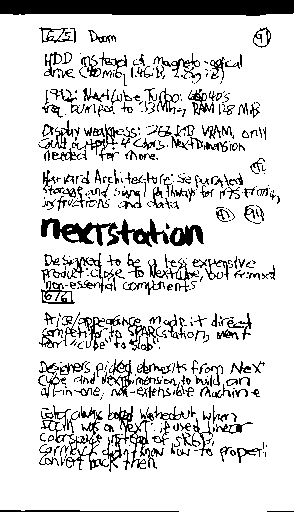 6/5 Doom 41
HDD instead of magneto-optical
drive (40 MiB, 1.4GiB, 2.8GiB)
1992: NextCube Turbo: 68040's
freq bumped to 33MHz, RAM 128 MiB
Display weakness: 256 KiB VRAM, only
could output 4 colors. NextDimension
needed for more.
Harvard Architecture: separated
storage and signal pathways for
instructions and data
nextstation
Designed to be a less expensive
product close to NextCube, but
non-essential components
6/6
Price/appearance made it direct
competitor to SPARCstation, went
from "cube" to "slab".
Designers picked elements from Next
Cube and NextDimension to build an
all-in-one, not-extensible machine
Color always looked washed out when
DOOM was on NeXT: it used linear
colorspace instead of sRGB;
Carmack didn't know how to properly
convert back then